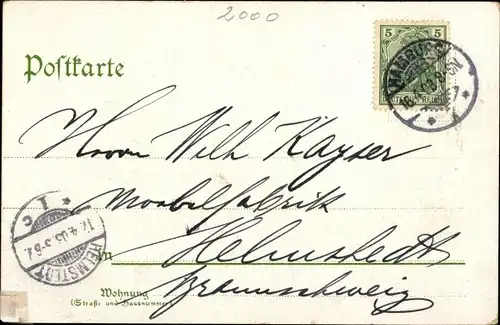 2000
Postkarte
5 5
HAMBURG
Herrn Wilh Kayser
Moobelfabrik
in Helmstedt
Braunschweig
HELMSTEDT
* 1 c
Wohnung
(Straße und Hausnummer)